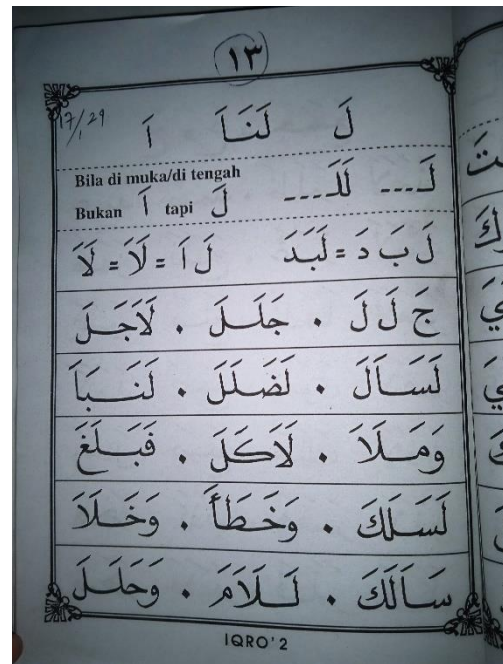 ١٣
17/1 29
لَ   لَنَاَ   اَ
لَـ --- لَلَـ ---
Bila di muka/di tengah
Bukan اَ tapi لَ
لَ بَ دَ = لَبَدَ   لَ اَ = لَاَ = لَاَ
جَ لَ لَ . جَلَـلَ . لَاَجَـلَ
لَسَـاَلَ . لَضَـلَلَ . لَنَـبَاَ
وَمَـلَاَ . لَاَكَلَ . فَبَـلَغَ
لَسَلَكَ . وَخَطَأَ . وَخَـلَاَ
سَـاَلَكَ . لَـلَاَمَ . وَحَلَـلَ
IQRO' 2